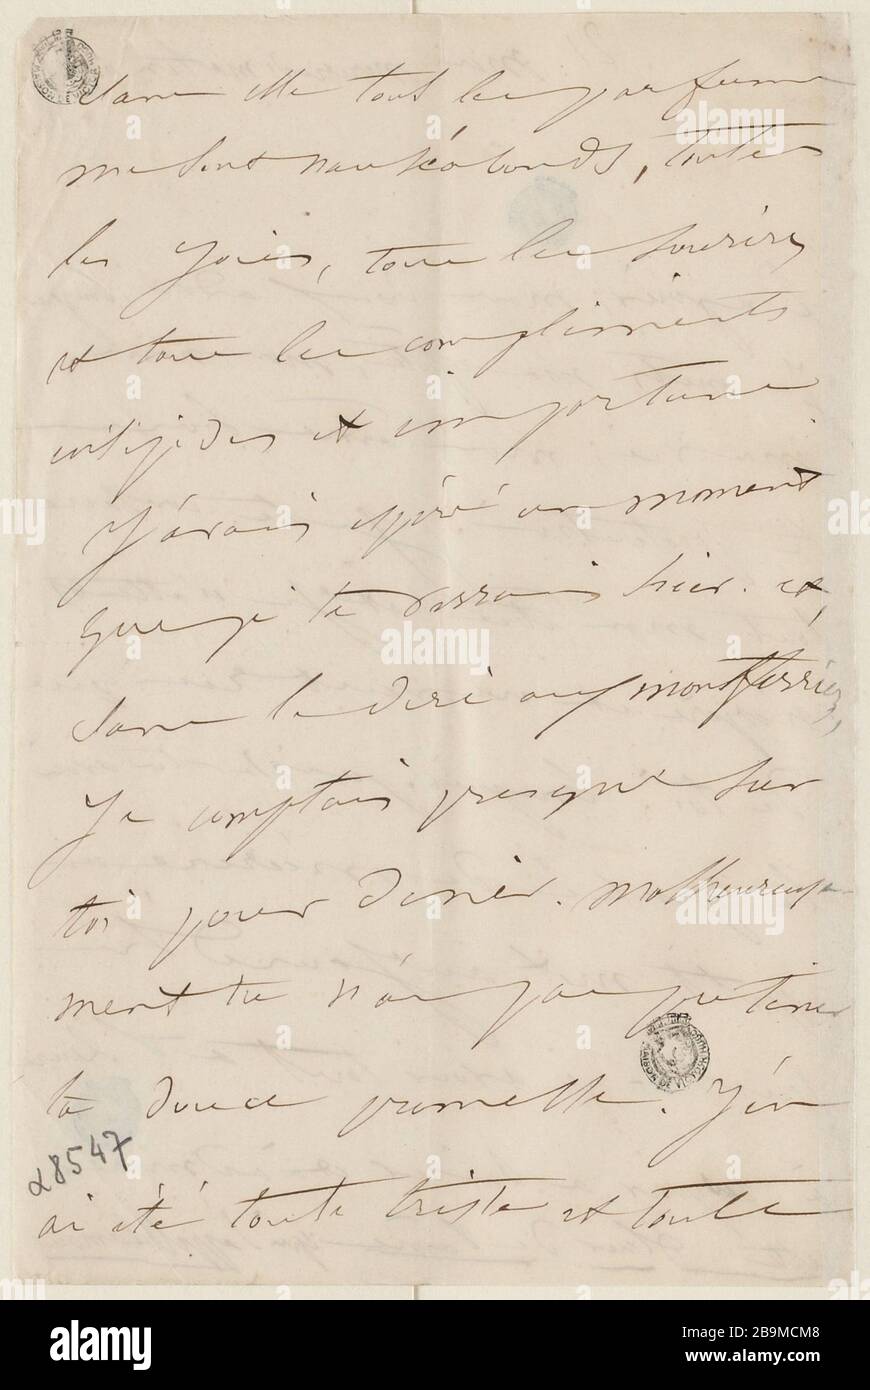 sans elle tous les parfums
me sont nauséabonds, toutes
les joies, tous les sourires
et tous les compliments
insipides et importuns
J'avais espéré un moment
que je te verrais hier. et,
sans le dire aux montferrier,
Je comptais presque sur
toi pour diner. malheureuse
ment tu n'as pas pu tenir
ta douce promesse. J'en
ai été toute triste et toute
28547
MAISON DE VICTOR HUGO
alamy
Image ID: 2B9MCM8
www.alamy.com